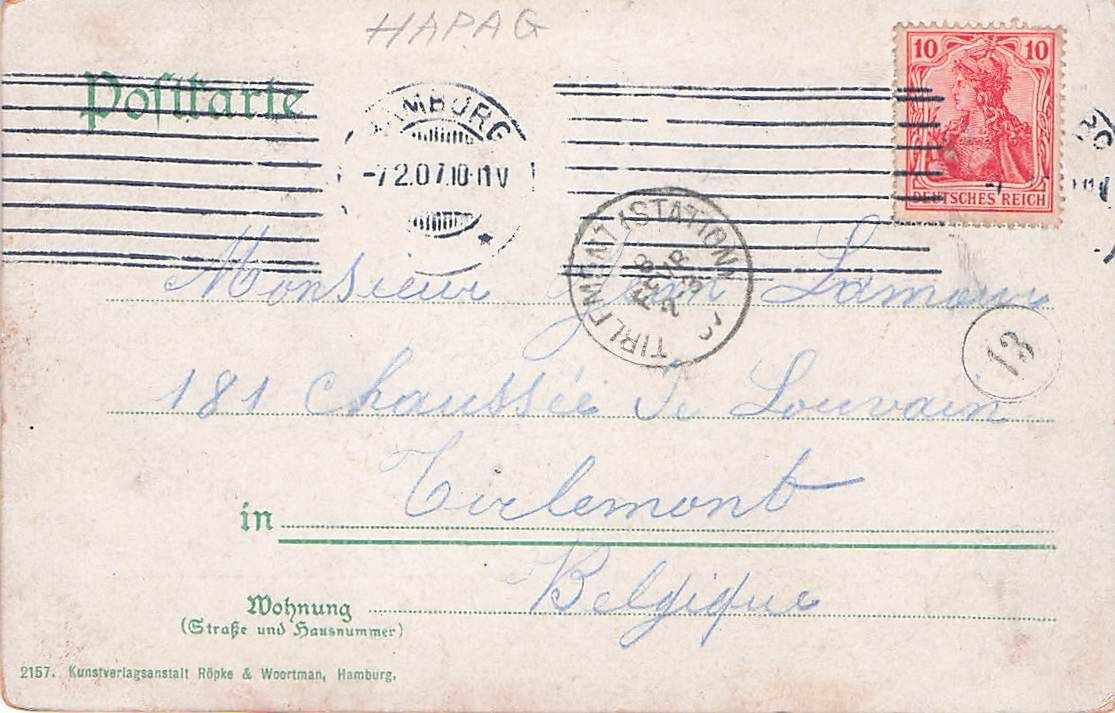 HAPAG
10 10
DEUTSCHES REICH
Postkarte
HAMBURG
-7.2.07.10-11V
TIRLEMONT (STATION)
8
FEVR
Monsieur Jean Lamour
13
181 Chaussée de Louvain
Tirlemont
in
Belgique
Wohnung
(Straße und Hausnummer)
2157. Kunstverlagsanstalt Röpke & Woortman, Hamburg.